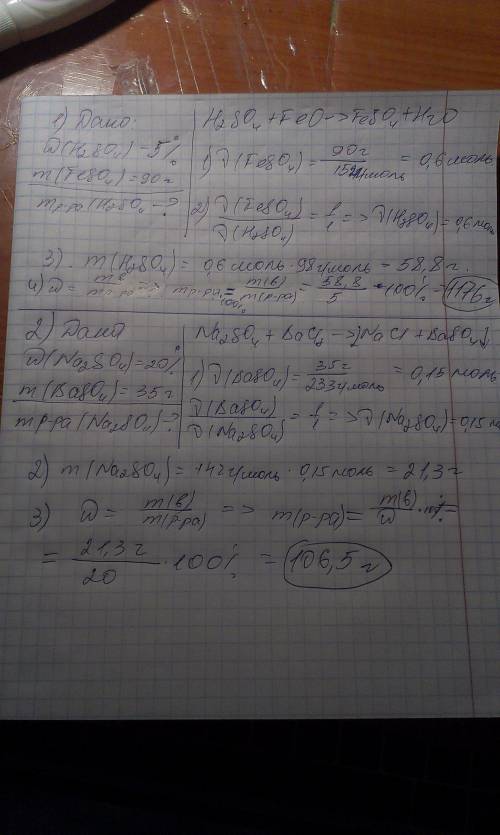 1) Дано:
ω(H₂SO₄) = 5%
m(FeSO₄) = 90г
mр-ра(H₂SO₄ - ?
H₂SO₄ + FeO -> FeSO₄ + H₂O
1) ν(FeSO₄) = 90г / 152г/моль = 0,6 моль
2) ν(FeSO₄) / ν(H₂SO₄) = 1/1 => ν(H₂SO₄) = 0,6 моль
3). m(H₂SO₄) = 0,6 моль · 98г/моль = 58,8 г.
4) ω = mв / mр-ра => mр-ра = m(в) / m(р-ра) = 58,8 / 5 · 100% = 1176 г
2) Дано
ω(Na₂SO₄) = 20%
m(BaSO₄) = 35г
mр-ра(Na₂SO₄) - ?
Na₂SO₄ + BaCl₂ -> 2NaCl + BaSO₄↓
1) ν(BaSO₄) = 35г / 233г/моль = 0,15 моль
ν(BaSO₄) / ν(Na₂SO₄) = 1/1 => ν(Na₂SO₄) = 0,15 мо
2) m(Na₂SO₄) = 142г/моль · 0,15 моль = 21,3 г
3) ω = m(в) / m(р-ра) => m(р-ра) = m(в) / ω · 100% =
= 21,3г / 20 · 100% = 106,5 г